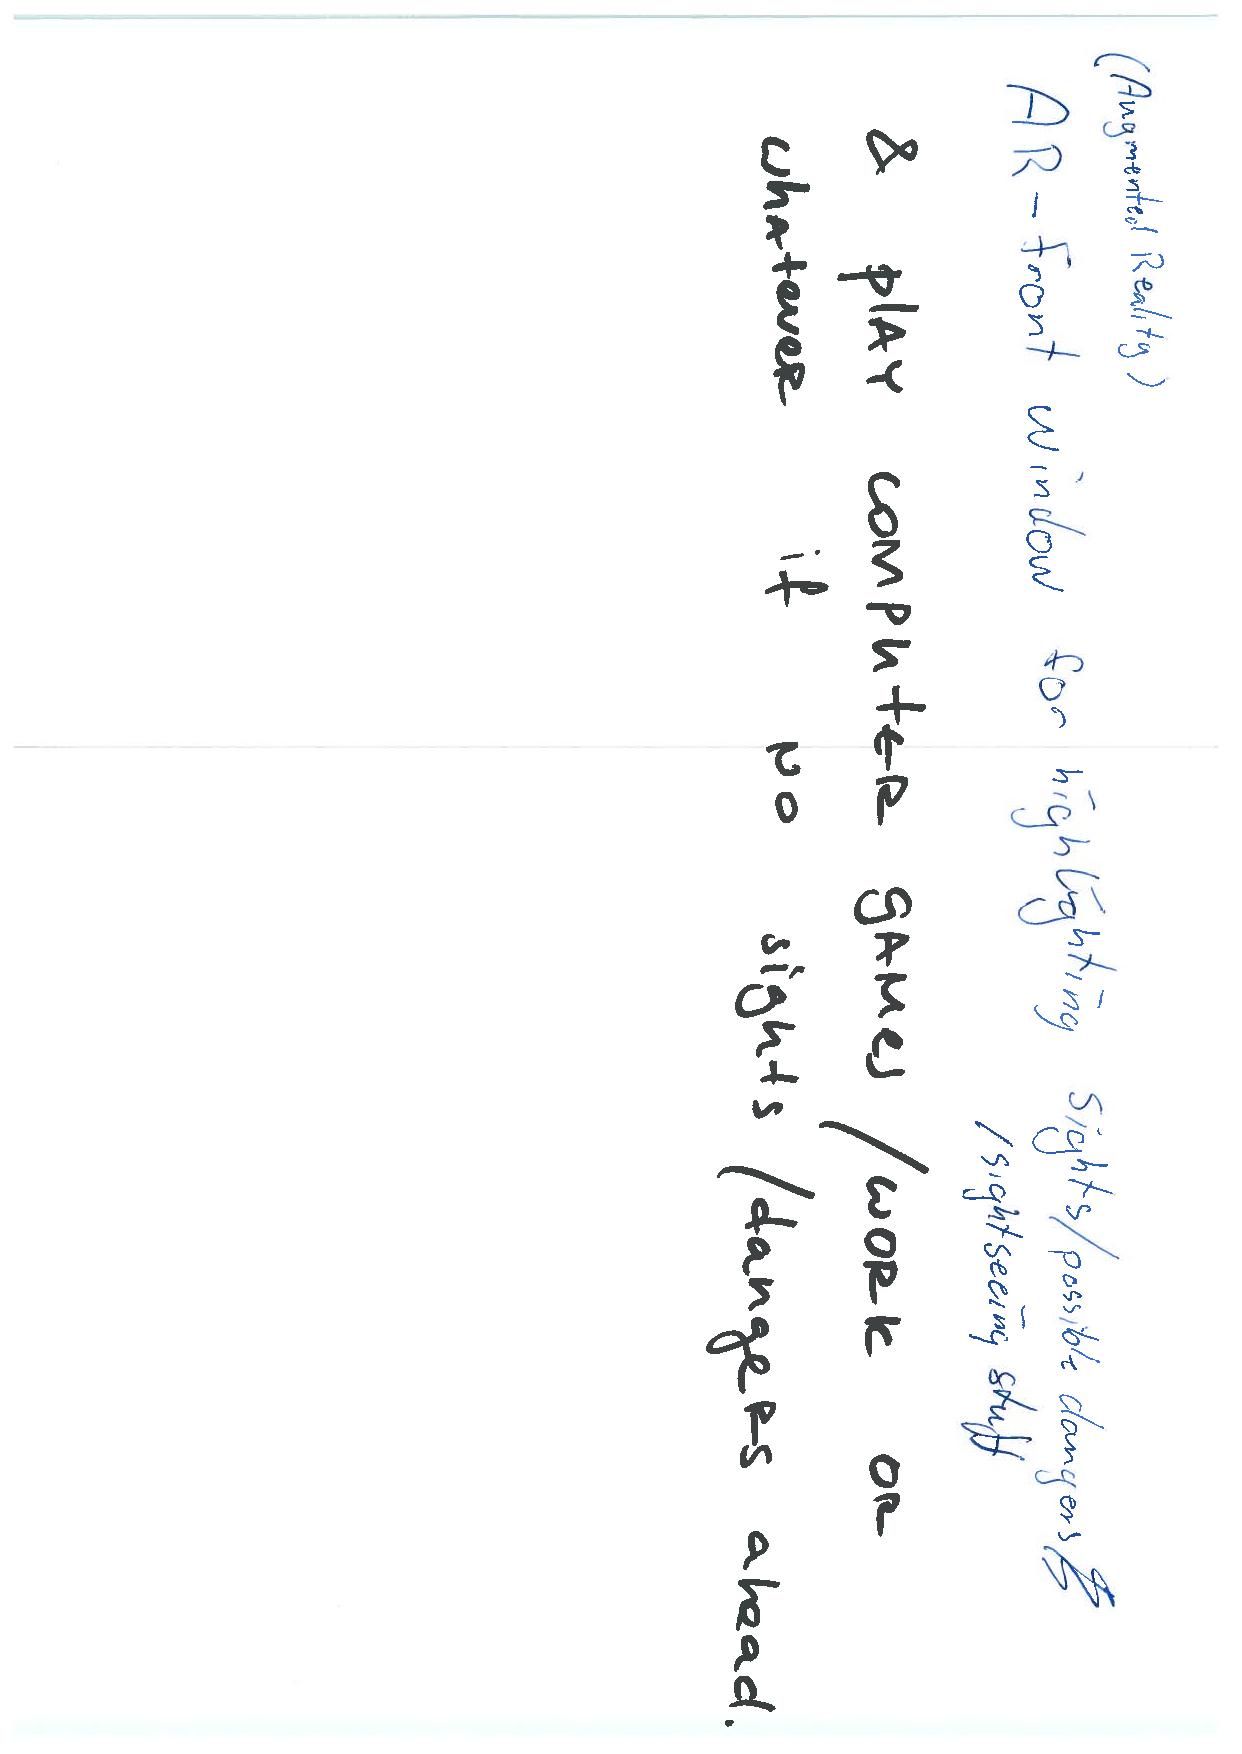 (Augmented Reality)
AR-front window for highlighting sights/possible dangers
/sightseeing stuff
& plAY computER gAMes/WORK OR
whateveR if NO sights/dangeRs ahead.